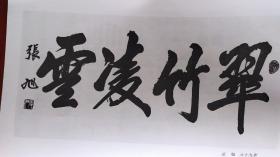 翠竹凌雲
張旭